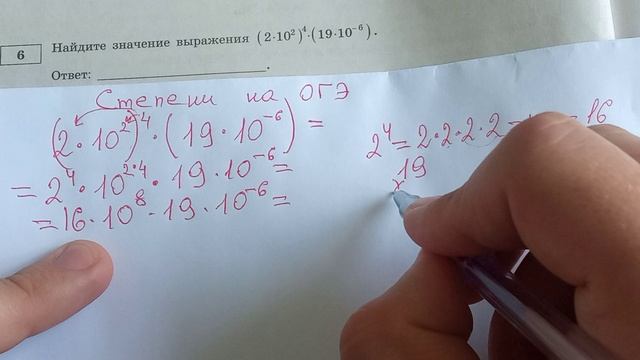 6 Найдите значение выражения (2·10²)⁴·(19·10⁻⁶).
Ответ: ____________.
Степени на ОГЭ
(2·10²)⁴·(19·10⁻⁶)=
=2⁴·10²·⁴·19·10⁻⁶=
=16·10⁸·19·10⁻⁶=
2⁴=2·2·2·2= =16
19
×